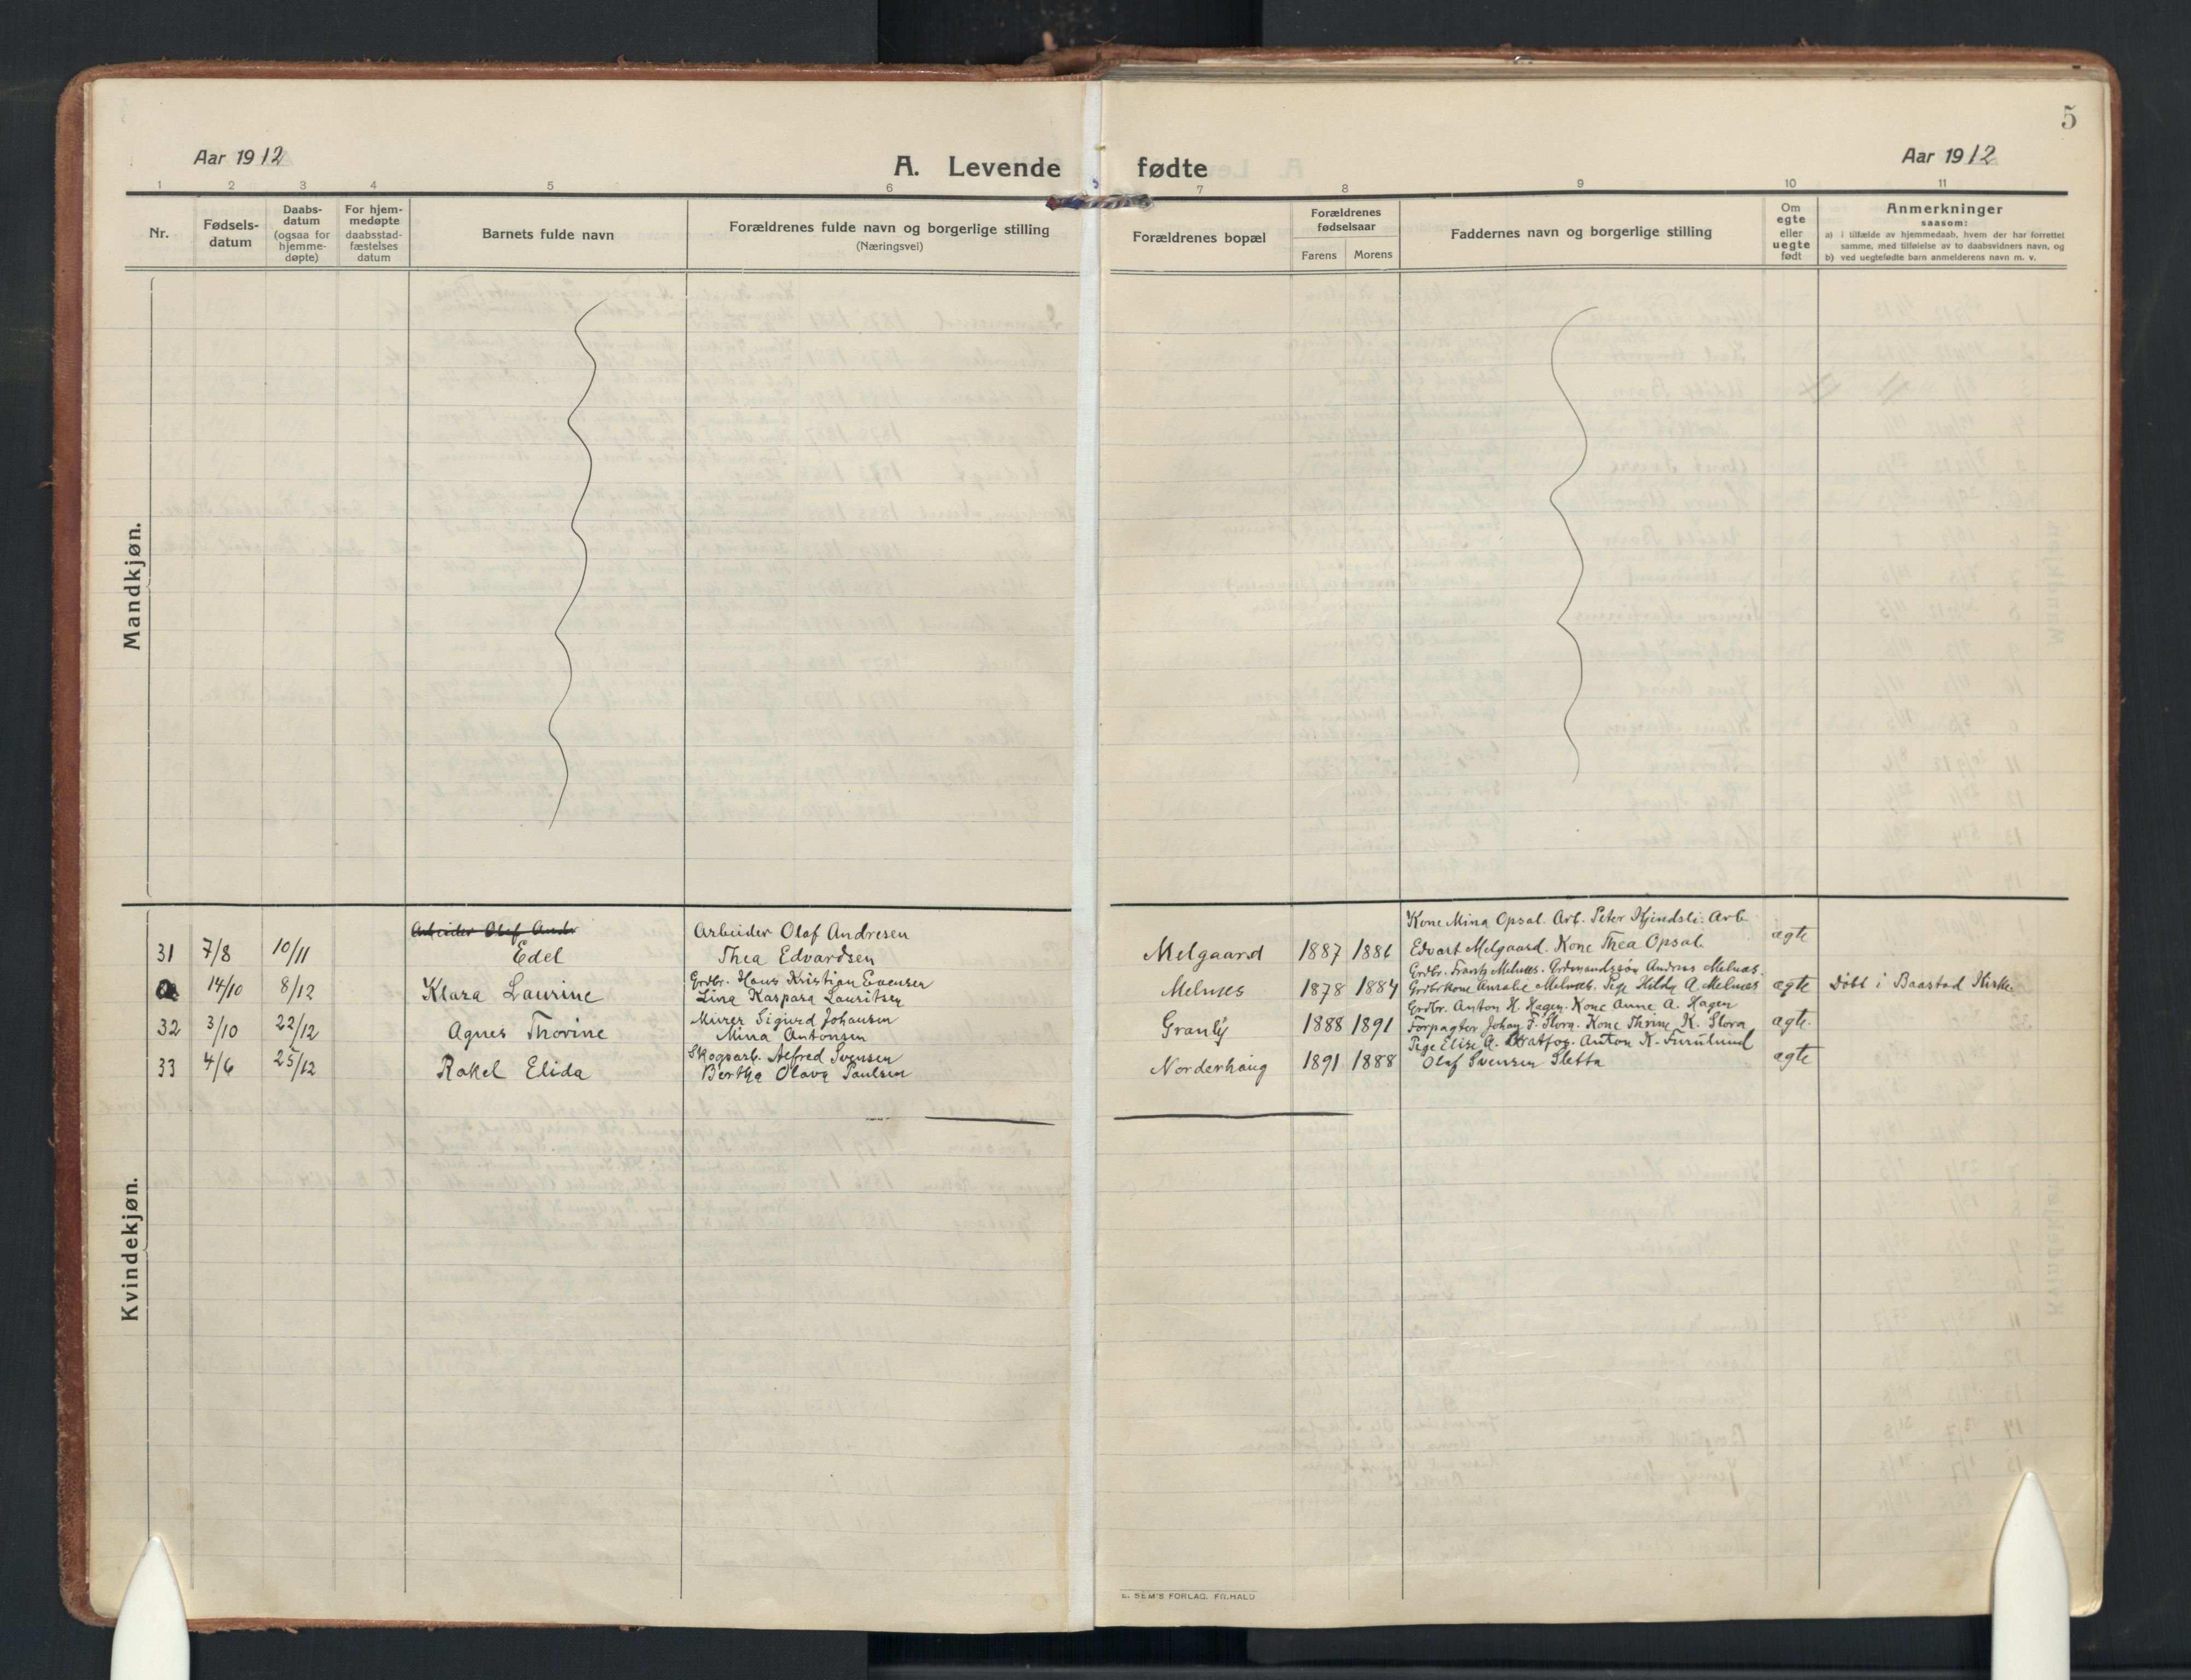 5
Aar 1912
A. Levende fødte
Aar 1912
1 2 3 4 5 6 7 8 9 10 11
Nr.
Fødsels-
datum
Daabs-
datum
(ogsaa for
hjemme-
døpte)
For hjem-
medøpte
daabsstad-
fæstelses
datum
Barnets fulde navn
Forældrenes fulde navn og borgerlige stilling
(Næringsvei)
Forældrenes bopæl
Forældrenes
fødselsaar
Farens Morens
Faddernes navn og borgerlige stilling
Om
egte
eller
uegte
født
Anmerkninger
saasom:
a) i tilfælde av hjemmedaab, hvem der har forrettet
samme, med tilføielse av to daabsvidners navn, og
b) ved uegtefødte barn anmelderens navn m. v.
Mandkjøn.
Kvindekjøn.
Arbeider Olaf Andr
31 7/8 10/11 Edel
Arbeider Olaf Andresen
Thea Edvardsen
Melgaard 1887 1886
Kone Mina Opsal. Arb. Peter Kjendsli. Arb
Edvart Melgaard. Kone Thea Opsal.
ægte
14/10 8/12 Klara Laurine
Grdbr. Hans Kristian Evensen
Lina Kaspara Lauritsen
Melnæs 1878 1884
Grdbr. Frantz Melnæs. Grdmandssøn Andreas Melnæs.
Grdbrkone Amalie Melnæs. Pige Hilda A. Melnæs
ægte Døbt i Baastad Kirke
32 3/10 22/12 Agnes Thorine
Murer Sigurd Johansen
Mina Antonsen
Granly 1888 1891
Grdbr. Anton H. Hagen. Kone Anne A. Hagen
Forpagter Johan F. Slora. Kone Thrine K. Slora
ægte.
33 4/6 25/12 Rakel Elida
Skogsarb. Alfred Svensen
Bertha Olava Paulsen
Norderhaug 1891 1888
Pige Elise A. Anton K. Furulund
Olaf Svensen Sletta
ægte
E. SEM'S FORLAG. FR.HALD